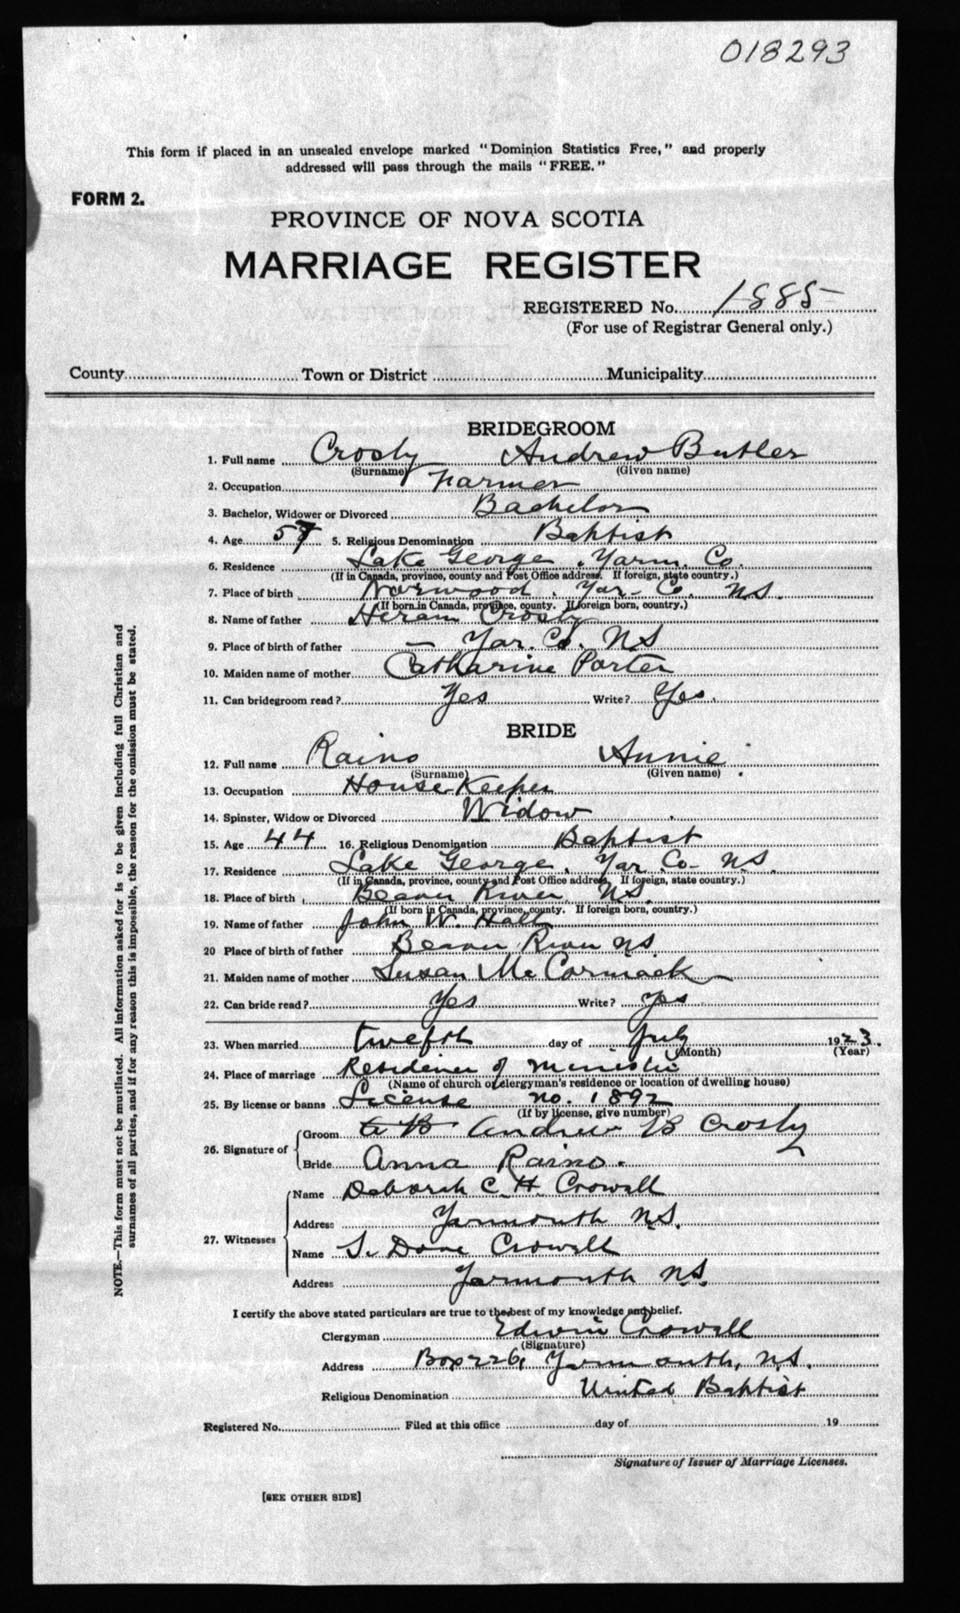 018293
This form if placed in an unsealed envelope marked "Dominion Statistics Free," and properly
addressed will pass through the mails "FREE."
FORM 2.
PROVINCE OF NOVA SCOTIA
MARRIAGE REGISTER
REGISTERED No. 1885
(For use of Registrar General only.)
County Town or District Municipality
BRIDEGROOM
1. Full name Crosby Andrew Butler
(Surname) (Given name)
2. Occupation Farmer
3. Bachelor, Widower or Divorced Bachelor
4. Age 57 5. Religious Denomination Baptist
6. Residence Lake George, Yarm. Co.
(If in Canada, province, county and Post Office address. If foreign, state country.)
7. Place of birth Norwood, Yar. Co. NS.
(If born in Canada, province, county. If foreign born, country.)
8. Name of father Hiram Crosby
9. Place of birth of father Yar. Co. NS
10. Maiden name of mother Catharine Porter
11. Can bridegroom read? Yes Write? Yes.
BRIDE
12. Full name Raino Annie
(Surname) (Given name)
13. Occupation House Keeper
14. Spinster, Widow or Divorced Widow
15. Age 44 16. Religious Denomination Baptist
17. Residence Lake George, Yar Co. NS.
(If in Canada, province, county and Post Office address, If foreign, state country.)
18. Place of birth Beaver River, NS.
(If born in Canada, province, county. If foreign born, country.)
19. Name of father John W. Hall
20 Place of birth of father Beaver River NS
21. Maiden name of mother Susan McCormack
22. Can bride read? Yes Write? Yes
23. When married twelfth day of July 1923.
(Month) (Year)
24. Place of marriage Residence of Minister
(Name of church or clergyman's residence or location of dwelling house)
25. By license or banns License no. 1892
(If by license, give number)
26. Signature of Groom A B Andrew B Crosby
Bride Anna Raino.
27. Witnesses Name Deborah C. H. Crowell
Address Yarmouth N.S.
Name S. Dane Crowell
Address Yarmouth N.S.
I certify the above stated particulars are true to the best of my knowledge and belief.
Clergyman Edwin Crowell
(Signature)
Address Box 226, Yarmouth, N.S.
Religious Denomination United Baptist
Registered No. Filed at this office day of 19
Signature of Issuer of Marriage Licenses.
[SEE OTHER SIDE]
NOTE.—This form must not be mutilated. All information asked for is to be given including full Christian and
surnames of all parties, and if for any reason this is impossible, the reason for the omission must be stated.